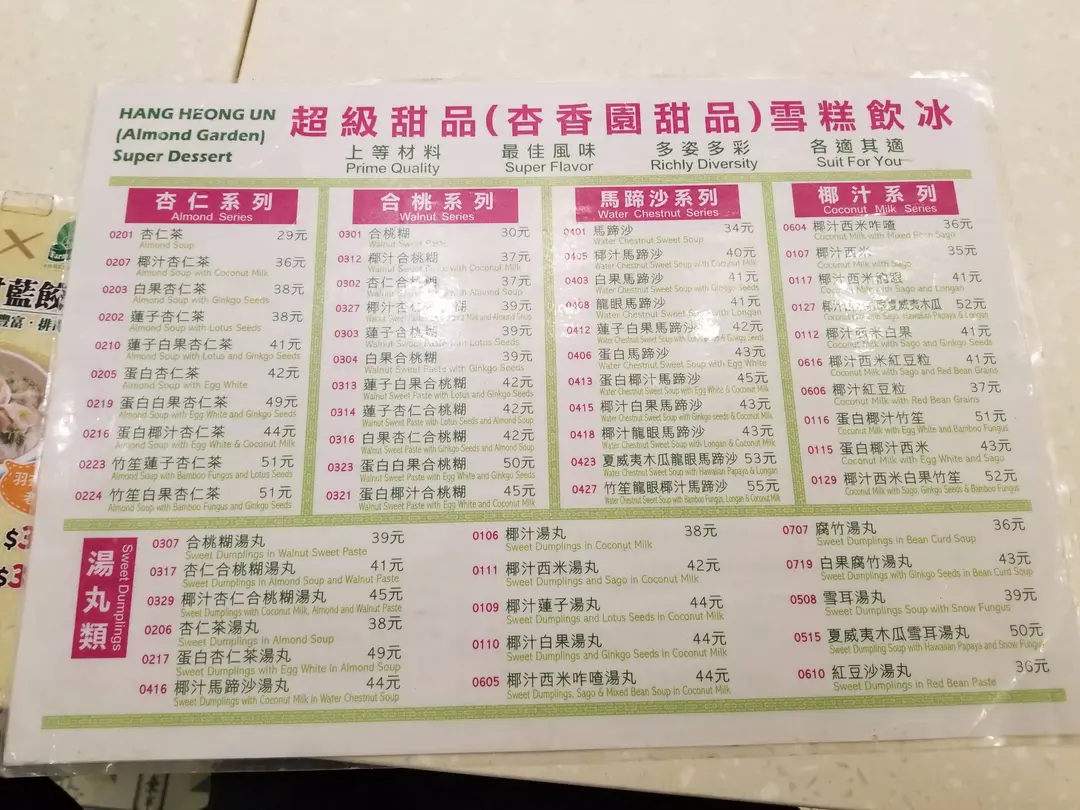 HANG HEONG UN
(Almond Garden)
Super Dessert
超級甜品(杏香園甜品)雪糕飲冰
上等材料 最佳風味 多姿多彩 各適其適
Prime Quality Super Flavor Richly Diversity Suit For You
杏仁系列
Almond Series
0201 杏仁茶 29元
Almond Soup
0207 椰汁杏仁茶 36元
Almond Soup with Coconut Milk
0203 白果杏仁茶 38元
Almond Soup with Ginkgo Seeds
0202 蓮子杏仁茶 38元
Almond Soup with Lotus Seeds
0210 蓮子白果杏仁茶 41元
Almond Soup with Lotus and Ginkgo Seeds
0205 蛋白杏仁茶 42元
Almond Soup with Egg White
0219 蛋白白果杏仁茶 49元
Almond Soup with Egg White and Ginkgo Seeds
0216 蛋白椰汁杏仁茶 44元
Almond Soup with Egg White & Coconut Milk
0223 竹笙蓮子杏仁茶 51元
Almond Soup with Bamboo Fungus and Lotus Seeds
0224 竹笙白果杏仁茶 51元
Almond Soup with Bamboo Fungus and Ginkgo Seeds
合桃系列
Walnut Series
0301 合桃糊 30元
Walnut Sweet Paste
0312 椰汁合桃糊 37元
Walnut Sweet Paste with Coconut Milk
0302 杏仁合桃糊 37元
Walnut Sweet Paste with Almond Soup
0327 椰汁杏仁合桃糊 39元
0303 蓮子合桃糊 39元
Walnut Sweet Paste with Lotus Seeds
0304 白果合桃糊 39元
Walnut Sweet Paste with Ginkgo Seeds
0313 蓮子白果合桃糊 42元
Walnut Sweet Paste with Lotus and Ginkgo Seeds
0314 蓮子杏仁合桃糊 42元
Walnut Sweet Paste with Lotus Seeds and Almond Soup
0316 白果杏仁合桃糊 42元
Walnut Sweet Paste with Ginkgo Seeds and Almond Soup
0323 蛋白白果合桃糊 50元
Walnut Sweet Paste with Egg White and Ginkgo Seeds
0321 蛋白椰汁合桃糊 45元
Walnut Sweet Paste with Egg White and Coconut Milk
馬蹄沙系列
Water Chestnut Series
0401 馬蹄沙 34元
Water Chestnut Sweet Soup
0405 椰汁馬蹄沙 40元
Water Chestnut Sweet Soup with Coconut Milk
0403 白果馬蹄沙 41元
Water Chestnut Sweet Soup with Ginkgo Seeds
0408 龍眼馬蹄沙 41元
Water Chestnut Sweet Soup with Longan
0412 蓮子白果馬蹄沙 42元
Water Chestnut Sweet Soup with Lotus and Ginkgo Seeds
0406 蛋白馬蹄沙 43元
Water Chestnut Sweet Soup with Egg White
0413 蛋白椰汁馬蹄沙 45元
Water Chestnut Sweet Soup with Egg White & Coconut Milk
0415 椰汁白果馬蹄沙 43元
Water Chestnut Sweet Soup with Ginkgo seeds & Coconut Milk
0418 椰汁龍眼馬蹄沙 43元
Water Chestnut Sweet Soup with Longan & Coconut Milk
0423 夏威夷木瓜龍眼馬蹄沙 53元
Water Chestnut Sweet Soup with Hawaiian Papaya & Longan
0427 竹笙龍眼椰汁馬蹄沙 55元
Water Chestnut Sweet Soup with Bamboo Fungus, Longan & Coconut Milk
椰汁系列
Coconut Milk Series
0604 椰汁西米咋喳 36元
Coconut Milk with Mixed Bean Sago
0107 椰汁西米 35元
Coconut Milk with Sago
0117 椰汁西米龍眼 41元
Coconut Milk with Sago and Longan
0127 夏威夷木瓜 52元
Coconut Milk with Sago, Hawaiian Papaya & Longan
0112 椰汁西米白果 41元
Coconut Milk with Sago and Ginkgo Seeds
0616 椰汁西米紅豆粒 41元
Coconut Milk with Sago and Red Bean Grains
0606 椰汁紅豆粒 37元
Coconut Milk with Red Bean Grains
0116 蛋白椰汁竹笙 51元
Coconut Milk with Egg White and Bamboo Fungus
0115 蛋白椰汁西米 43元
Coconut Milk with Egg White and Sago
0129 椰汁西米白果竹笙 52元
Coconut Milk with Sago, Ginkgo Seeds & Bamboo Fungus
湯丸類
Sweet Dumplings
0307 合桃糊湯丸 39元
Sweet Dumplings in Walnut Sweet Paste
0317 杏仁合桃糊湯丸 41元
Sweet Dumplings in Almond Soup and Walnut Paste
0329 椰汁杏仁合桃糊湯丸 45元
Sweet Dumplings with Coconut Milk, Almond and Walnut Paste
0206 杏仁茶湯丸 38元
Sweet Dumplings in Almond Soup
0217 蛋白杏仁茶湯丸 49元
Sweet Dumplings with Egg White In Almond Soup
0416 椰汁馬蹄沙湯丸 44元
Sweet Dumplings with Coconut Milk in Water Chestnut Soup
0106 椰汁湯丸 38元
Sweet Dumplings in Coconut Milk
0111 椰汁西米湯丸 42元
Sweet Dumplings and Sago in Coconut Milk
0109 椰汁蓮子湯丸 44元
Sweet Dumplings and Lotus Seeds in Coconut Milk
0110 椰汁白果湯丸 44元
Sweet Dumplings and Ginkgo Seeds in Coconut Milk
0605 椰汁西米咋喳湯丸 44元
Sweet Dumplings, Sago & Mixed Bean Soup in Coconut Milk
0707 腐竹湯丸 36元
Sweet Dumplings in Bean Curd Soup
0719 白果腐竹湯丸 43元
Sweet Dumplings with Ginkgo Seeds in Bean Curd Soup
0508 雪耳湯丸 39元
Sweet Dumplings Soup with Snow Fungus
0515 夏威夷木瓜雪耳湯丸 50元
Sweet Dumpling Soup with Hawaiian Papaya and Snow Fungus
0610 紅豆沙湯丸 36元
Sweet Dumplings in Red Bean Paste